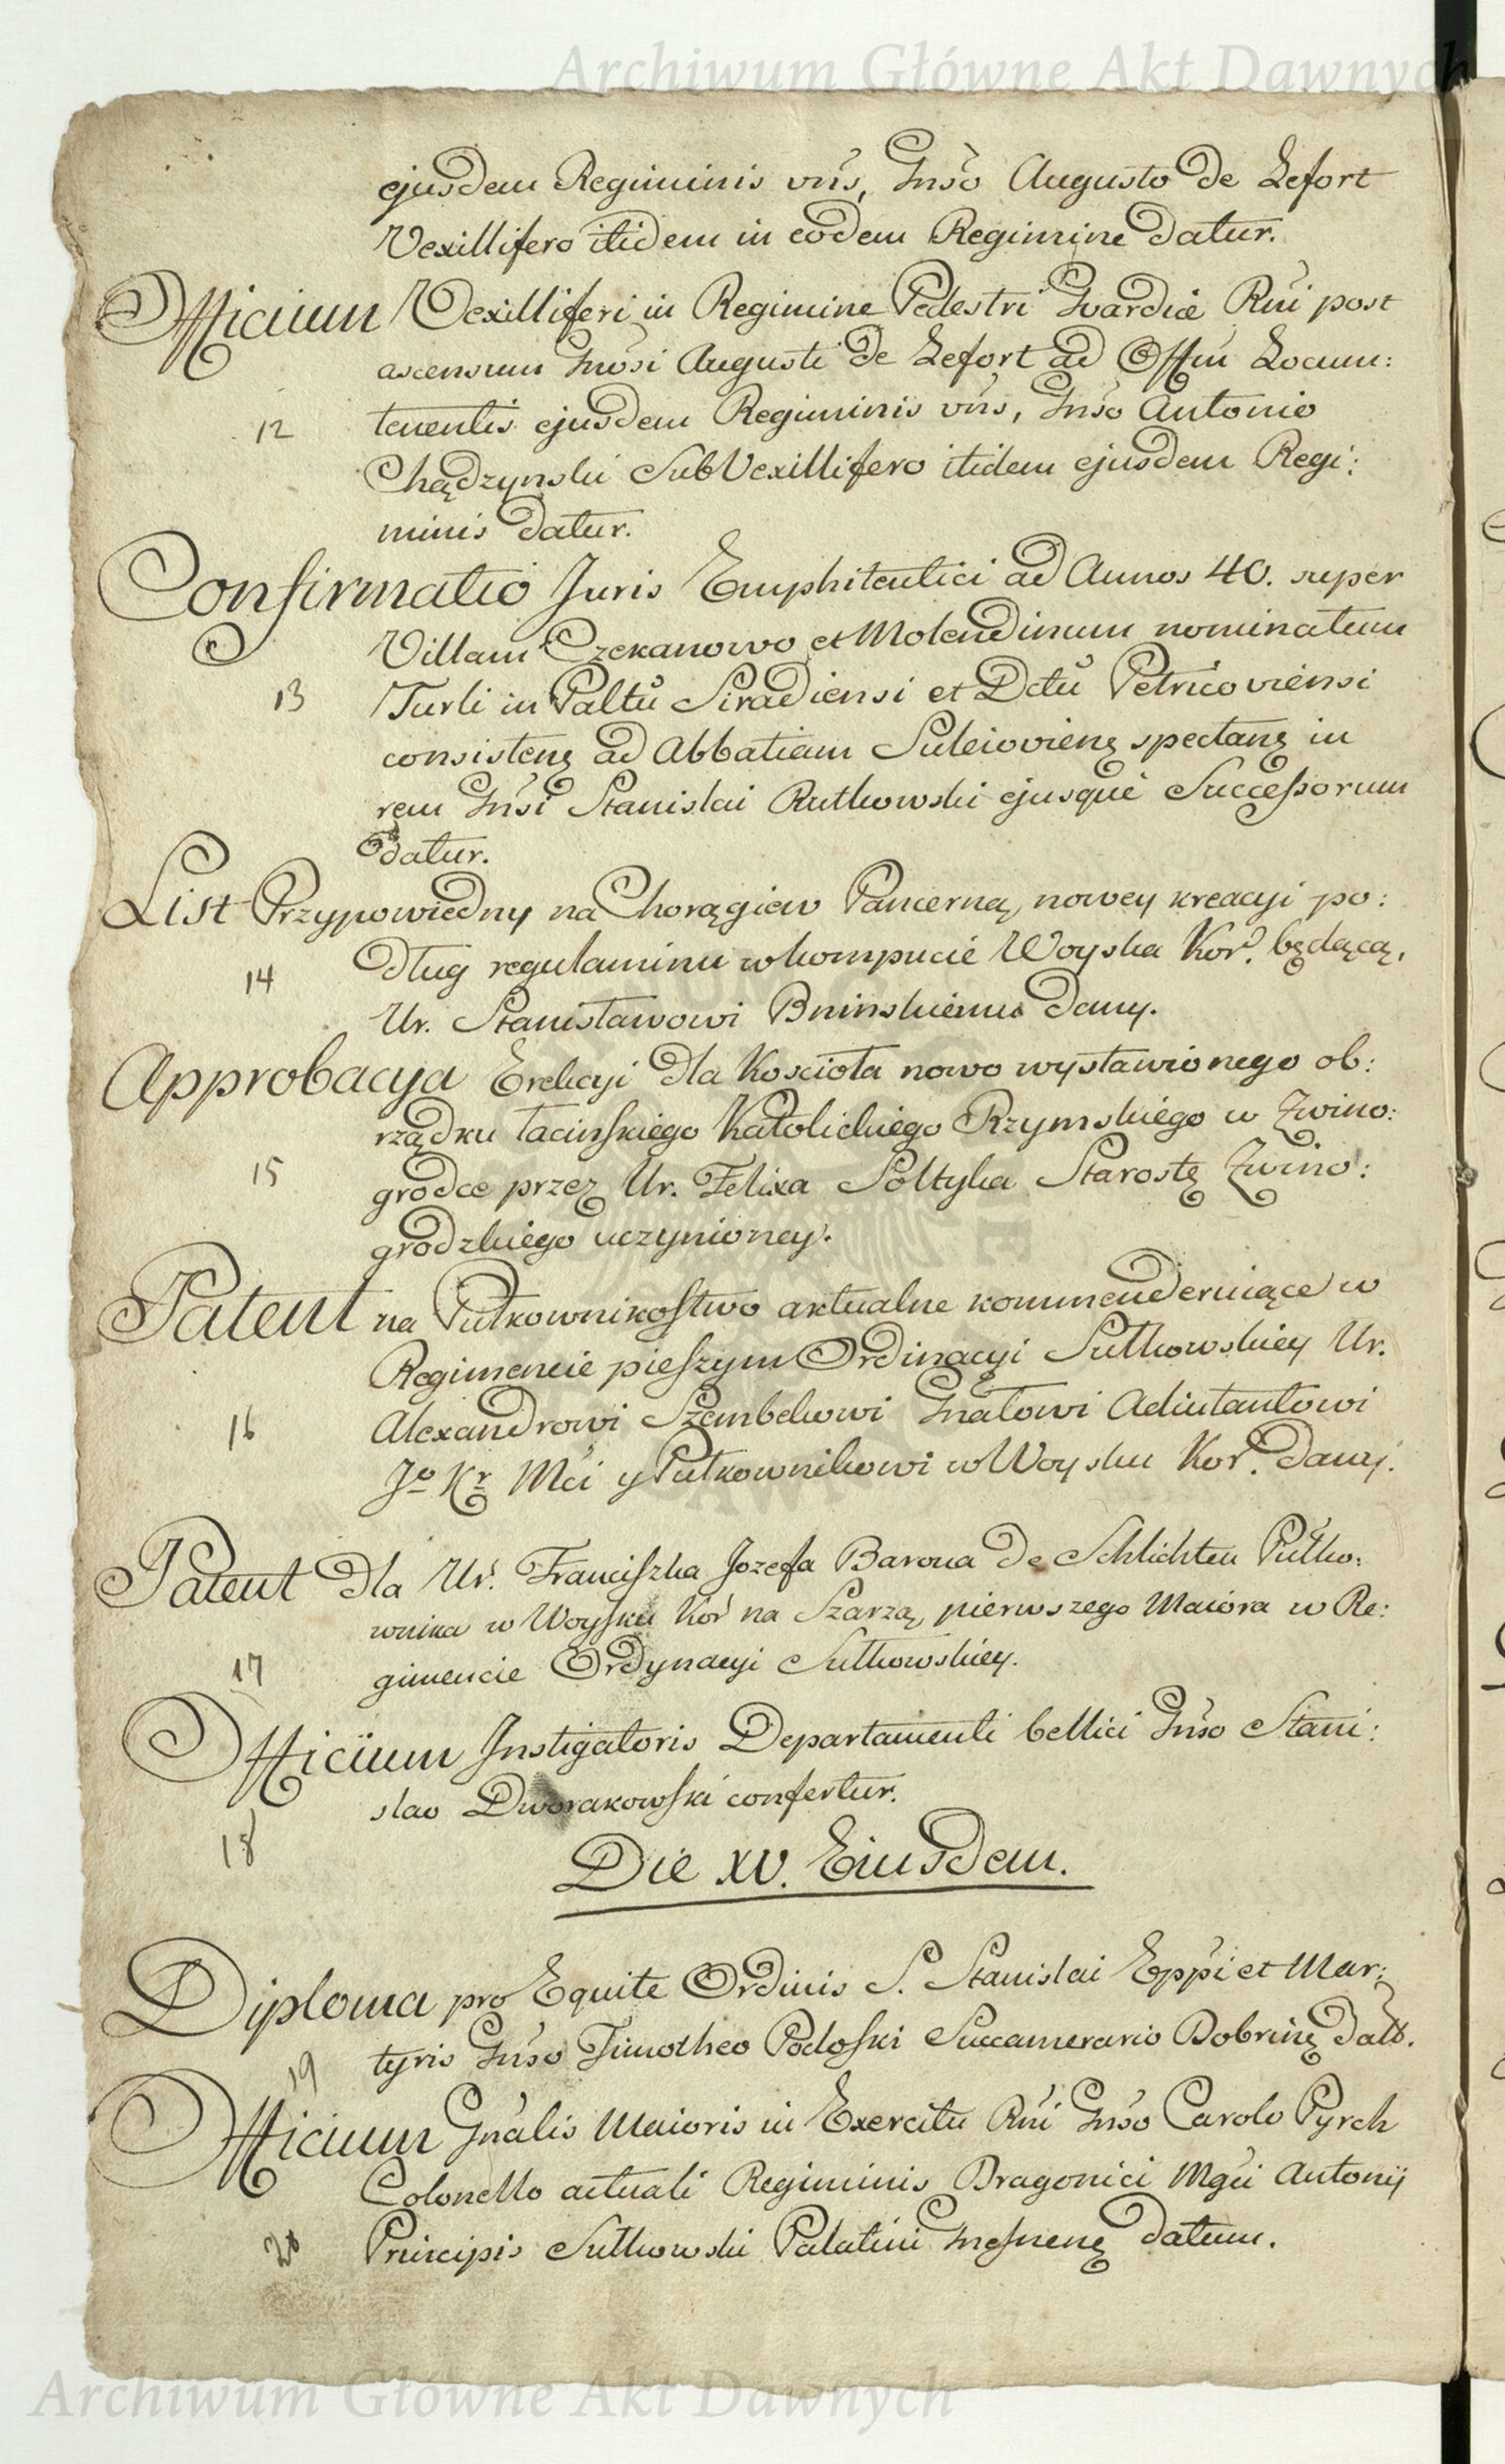 Archiwum Główne Akt Dawnych
ejusdem Regiminis vrîs, Gnsô Augusto De Lefort
Vexillifero itidem in eodem Regimine datur.
Officium Vexilliferi in Regimine Pedestri Gvardiæ Rñi post
ascensum Gnosi Augusti De Lefort ad Offm Locum:
12 tenentis ejusdem Regiminis vrîs, Gnsô Antonio
Chądzynski SubVexillifero itidem ejusdem Regi:
minis datur.
Confirmatio Juris Emphiteutici ad Annos 40. super
Villam Czekanowo et Molendinum nominatum
13 Turli in Paltû Siradiensi et Dctû Petricoviensi
consisteñ ad Abbatiam Suleiovieñ spectañ in
rem Gnsi Stanislai Rutkowski ejusque Successorum
datur.
List Przypowiedny na Chorągiew Pancerną, nowey kreacyi po:
14 dług regulaminu w kompucie Woyska Kor. będącą,
Ur. Stanisławowi Bninskiemu dany.
Approbacya Erekcyi dla Kościoła nowo wystawionego ob:
rządku Łacinskiego Katolickiego Rzymskiego w Zwino:
15 grodce przez Ur. Felixa Sołtyka Starostę Zwino:
grodzkiego uczynioney.
Patent na Pułkownikostwo aktualne kommenderuiące w
Regimencie pieszym Ordinacyi Sułkowskiey Ur.
16 Alexandrowi Szembekowi Gnałowi Adiutantowi
Jo Kr Mci y Pułkownikowi w Woysku Kor. dany.
Patent dla Ur. Franciszka Jozefa Barona de Schlichten Pułko:
wnika w Woysku Kor na Szarzą pierwszego Maiora w Re:
17 gimencie Ordynacyi Sułkowskiey.
Officium Instigatoris Departamenti bellici Gnso Stani:
slao Dworakowski confertur.
18
Die XV. Eiusdem.
Diploma pro Equite Ordinis S. Stanislai Eppi et Mar:
tyris Gnso Timotheo Podoski Succamerario Dobrineñ dat.
19
Officium Gnalis Maioris in Exercitu Rñi Gnso Carolo Pyrch
Colonello actuali Regiminis Dragonici Mgci Antonij
20 Principis Sułkowski Palatini Gnesneñ datum.
Archiwum Główne Akt Dawnych